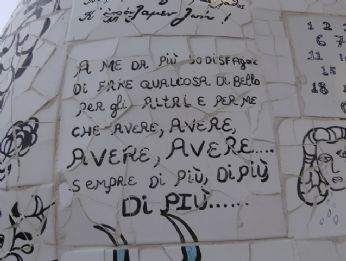 A ME DA PIÙ SODISFAZIONE
DI FARE QUALCOSA DI BELLO
PER gli ALTRI E PER ME
CHE AVERE, AVERE,
AVERE, AVERE....
SEMPRE DI PIÙ, DI PIÙ
Di PIÙ......
1 2
6 7
11
15
18